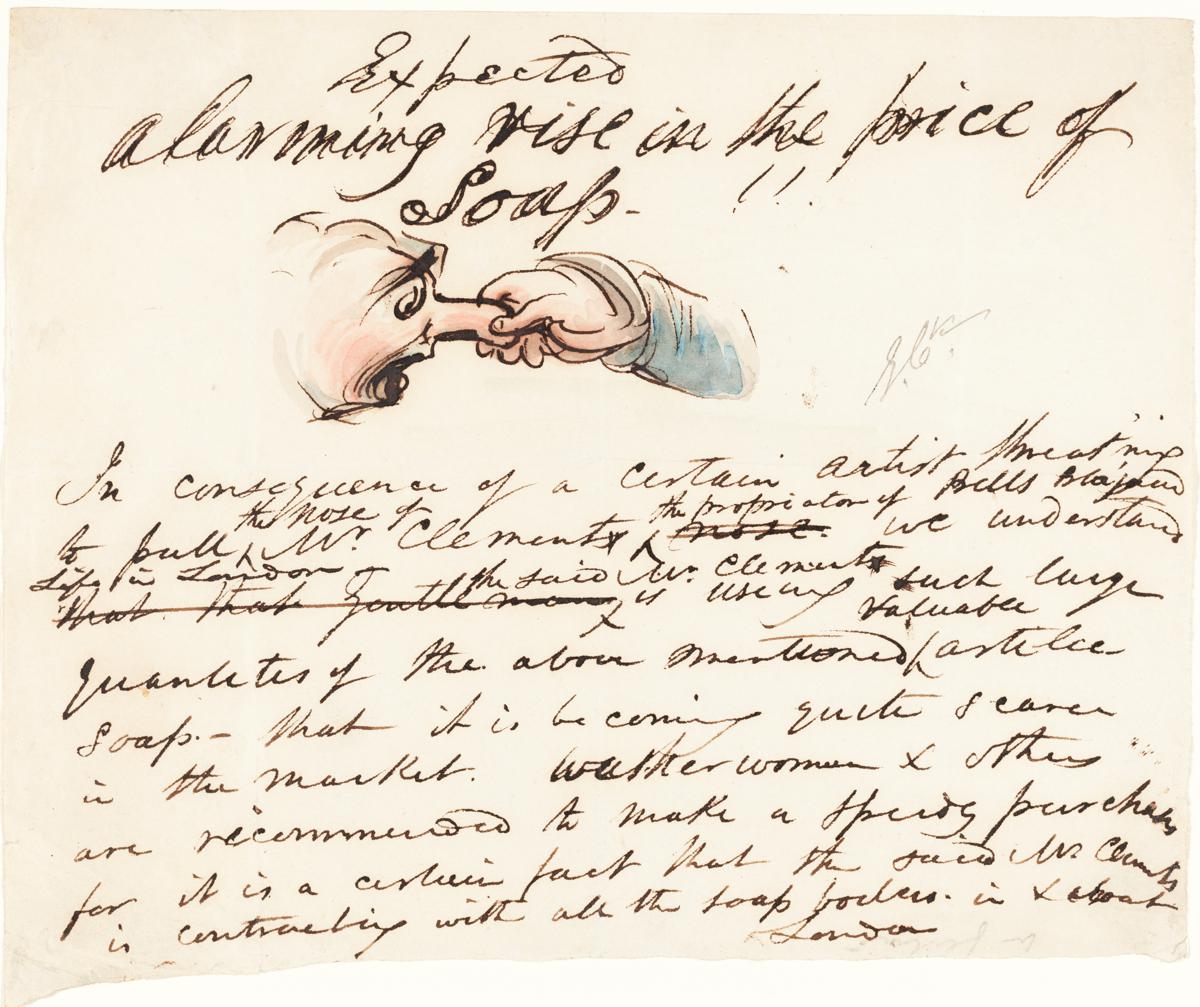 Expected
alarming rise in the price of
Soap - !!!
G. Ck.
In consequence of a certain artist threat'ning
to pull the nose of Mr. Clements the propriator of Bells
Life in London - we understand
the said Mr. Clements is useing such large
quantetes of the above mentioned valuable artilce
Soap - that it is becoming quite scarce
in the market. Washerwomen & others
are recommended to make a speedy purchase
for it is a certain fact that the said Mr. Clements
is contracting with all the soap boilers. in & about
London